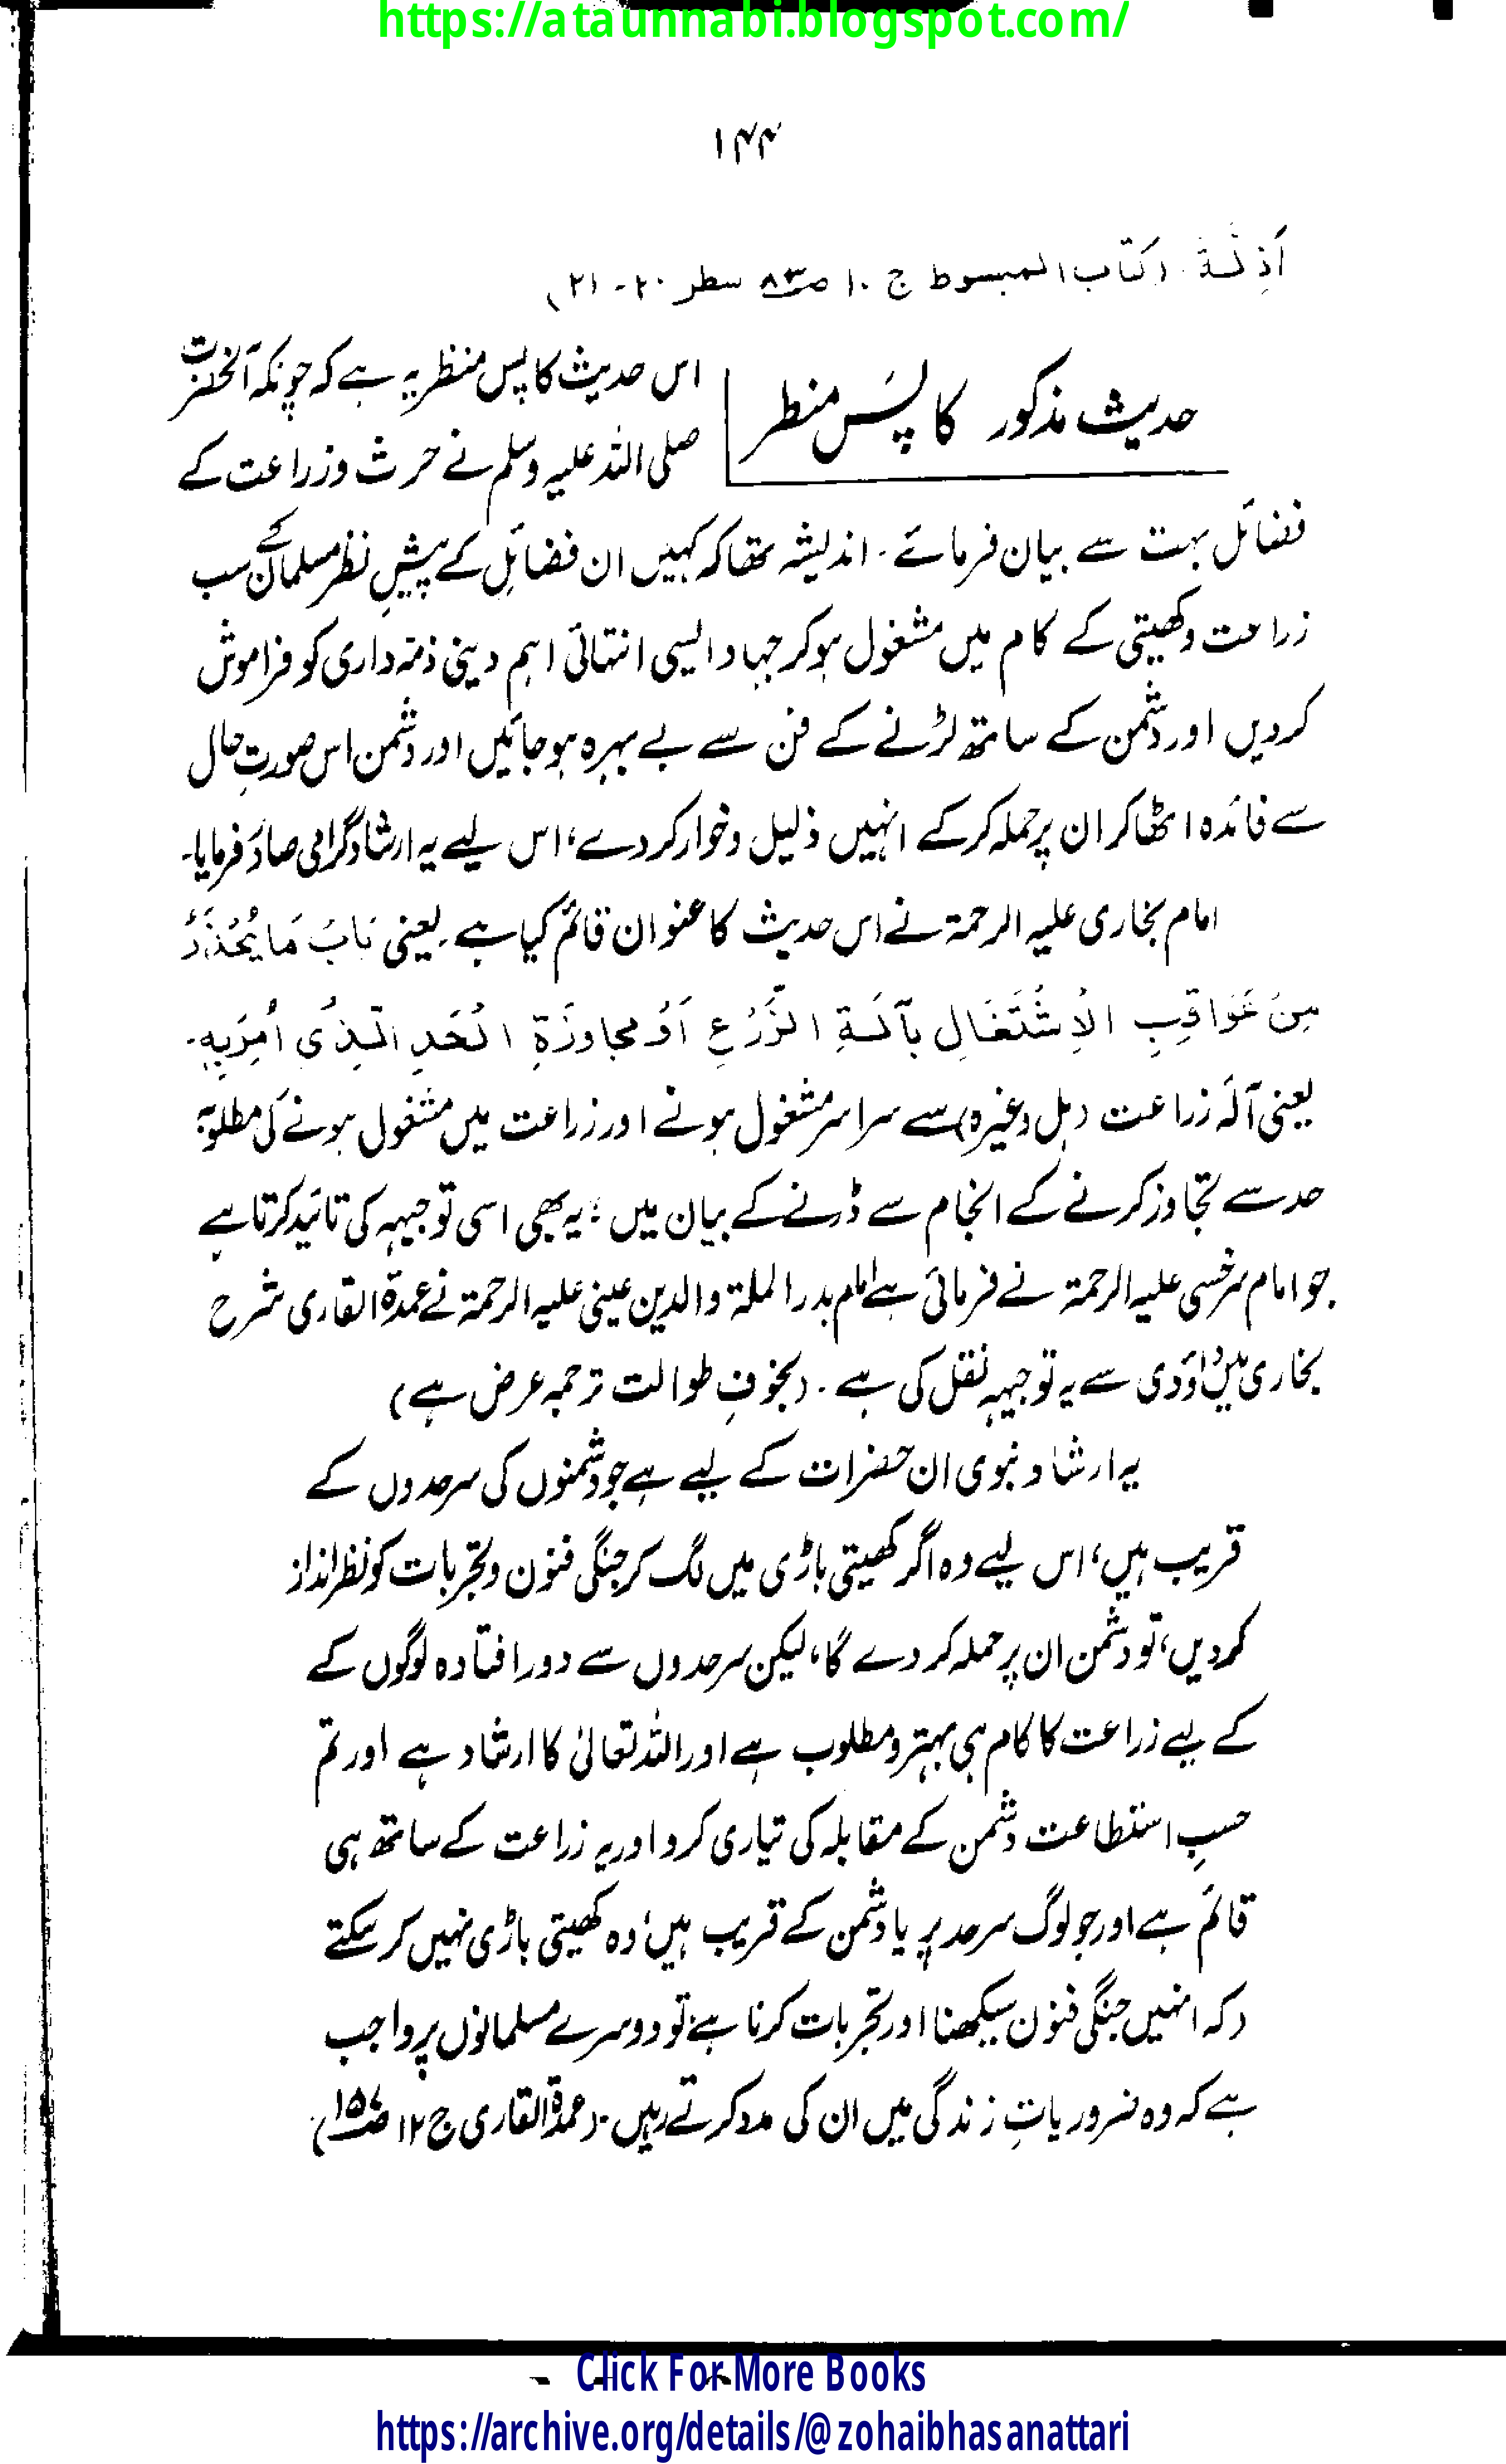 https://ataunnabi.blogspot.com/
۱۴۴
اَذِلَّةً (کتاب المبسوط ج ۱۰ ص۸۳ سطر ۲۰-۲۱)
حدیث مذکور کا پسَ منظر
اس حدیث کا پس منظر یہ ہے کہ چونکہ آنحضرت
صلی اللہ علیہ وسلم نے حرث و زراعت کے
فضائل بہت سے بیان فرمائے۔ اندیشہ تھا کہ کہیں ان فضائل کے پیشِ نظر مسلمان سب کے سب
زراعت و کھیتی کے کام میں مشغول ہو کر جہاد ایسی انتہائی اہم دینی ذمّہ داری کو فراموش
کردیں اور دشمن کے ساتھ لڑنے کے فن سے بے بہرہ ہو جائیں اور دشمن اس صورتِ حال
سے فائدہ اٹھا کر ان پر حملہ کر کے انہیں ذلیل و خوار کر دے، اس لیے یہ ارشاد گرامی صادر فرمایا۔
امام بخاری علیہ الرحمۃ نے اس حدیث کا عنوان قائم کیا ہے۔ یعنی بَابُ مَا یُحْذَرُ
مِنْ عَوَاقِبِ الْاِشْتَغَالِ بِآلَۃِ الزَّرْعِ اَوْ مجاوزَۃِ الْحَدِ الَّذِیْ اُمِرَبِہٖ۔
یعنی آلہَ زراعت (ہل وغیرہ) سے سراسر مشغول ہونے اور زراعت میں مشغول ہونے کی مطلوبہ
حد سے تجاوز کرنے کے انجام سے ڈرنے کے بیان میں؛ یہ بھی اسی توجیہہ کی تائید کرتا ہے
جو امام سرخسی علیہ الرحمۃ نے فرمائی ہے امام بدر الملۃ والدین عینی علیہ الرحمۃ نے عمدۃ القاری شرح
بخاری میں داوَدی سے یہ توجیہہ نقل کی ہے۔ (بخوفِ طوالت ترجمہ عرض ہے)
یہ ارشاد نبوی ان حضرات کے لیے ہے جو دشمنوں کی سرحدوں کے
قریب ہیں، اس لیے وہ اگر کھیتی باڑی میں لگ کر جنگی فنون و تجربات کو نظر انداز
کردیں، تو دشمن ان پر حملہ کر دے گا، لیکن سرحدوں سے دور افتادہ لوگوں کے
کے لیے زراعت کا کام ہی بہتر و مطلوب ہے اور اللہ تعالیٰ کا ارشاد ہے اور تم
حسبِ استطاعت دشمن کے مقابلہ کی تیاری کرو اور یہ زراعت کے ساتھ ہی
قائم ہے اور جو لوگ سرحد پر یا دشمن کے قریب ہیں، وہ کھیتی باڑی نہیں کر سکتے
(کہ انہیں جنگی فنون سیکھنا اور تجربات کرنا ہے) تو دوسرے مسلمانوں پر واجب
ہے کہ وہ ضروریاتِ زندگی میں ان کی مدد کرتے رہیں۔ (عمدۃ القاری ج ۱۲ ص۱۵۷)
Click For More Books
https://archive.org/details/@zohaibhasanattari